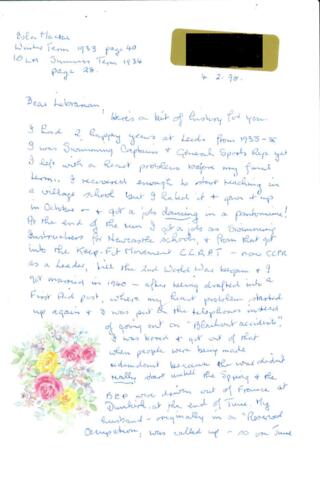 Winter Term 1933 page 40
10 LM Summer Term 1934
page 28.
4.2.98.
Dear Librarian,
Here's a bit of history for you
I had 2 happy years at Leeds from 1933-35
I was Swimming Captain & General Sports Rep yet
I left with a heart problem before my final
term. I recovered enough to start teaching in
a village school but I hated it & gave it up
in October - & got a job dancing in a pantomime!
At the end of the run I got a job as Swimming
Instructress for Newcastle schools, & from that got
into the Keep-Fit Movement C.C.R.P.T - now CCPR
as a Leader, till the 2nd World War began & I
got married in 1940 - after being drafted into a
First Aid post, where my heart problem started
up again & I was put on the telephones instead
of going out on "Blackout accidents".
I was bored & got out of that
when people were being made
redundant because the war didn't
really start until the Spring & the
BEF were driven out of France at
Dunkirk, at the end of June. My
husband - originally in a "Reserved
Occupation", was called up - so in June